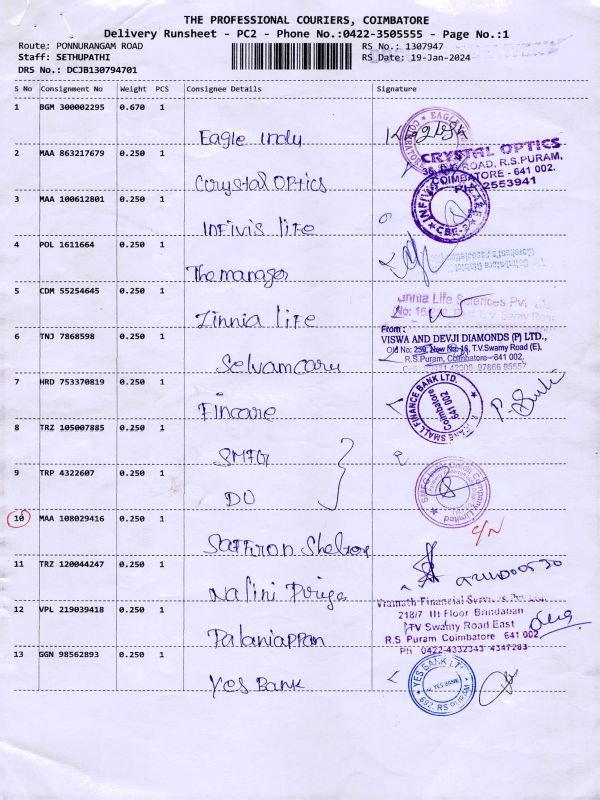 THE PROFESSIONAL COURIERS, COIMBATORE
Delivery Runsheet - PC2 - Phone No.:0422-3505555 - Page No.:1
Route: PONNURANGAM ROAD
RS No.: 1307947
Staff: SETHUPATHI
RS Date: 19-Jan-2024
DRS No.: DCJB130794701
S No Consignment No Weight PCS Consignee Details Signature
1 BGM 300002295 0.670 1
Eagle Indy
2 MAA 863217679 0.250 1
Corystal Optics
CRYSTAL OPTICS
ROAD, R.S.PURAM,
COIMBATORE - 641 002.
2553941
3 MAA 100612801 0.250 1
INFIVIS life
CBE-2
4 POL 1611664 0.250 1
The manager
5 CDM 55254645 0.250 1
Zinnia life
Zinnia Life Sciences Pvt
6 TNJ 7868598 0.250 1
Selvamcaru
From:
VISWA AND DEVJI DIAMONDS (P) LTD.,
Old No: 259, New No: 16, T.V.Swamy Road (E),
R.S.Puram, Coimbatore - 641 002.
42000, 97866 95557
7 HRD 753370819 0.250 1
Fincare
SMALL FINANCE BANK LTD.
Coimbatore
641 002
8 TRZ 105007885 0.250 1
SMFG
9 TRP 4322607 0.250 1
DO
SMFG India Credit Company Limited
10 MAA 108029416 0.250 1
C/N
Saffron Shelson
11 TRZ 120044247 0.250 1
Nalini Puriga
12 VPL 219039418 0.250 1
Palaniappan
Financial Services Pvt Ltd
218/7 III Floor Brindavan
TV Swamy Road East
R.S Puram Coimbatore 641 002
Ph 0422-4332343 4347283
13 GGN 98562893 0.250 1
Yes Bank
YES BANK LTD
YES BANK
RS PURAM